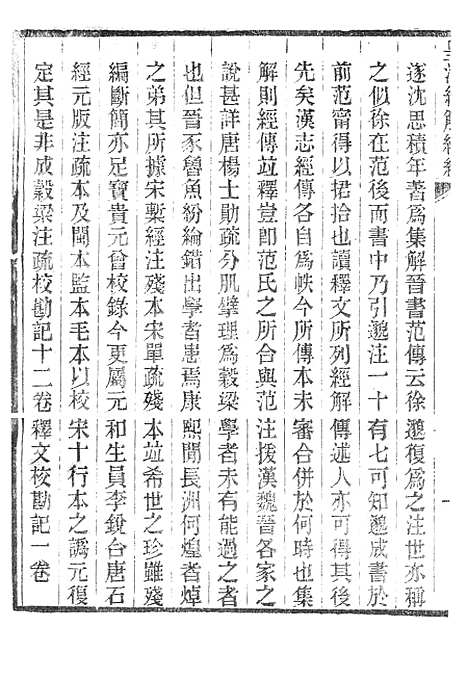 皇清經解續編
遂沈思積年著爲集解晉書范傳云徐邈復爲之注世亦稱
之似徐在范後而書中乃引邈注一十有七可知邈成書於
前范甯得以捃拾也讀釋文所列經解傳述人亦可得其後
先矣漢志經傳各自爲帙今所傳本未審合併於何時也集
解則經傳竝釋豈卽范氏之所合與范注援漢魏晉各家之
說甚詳唐楊士勛疏分肌擘理爲穀梁學者未有能過之者
也但晉豕魯魚紛綸錯出學者患焉康熙閒長洲何煌者焯
之弟其所據宋槧經注殘本宋單疏殘本竝希世之珍雖殘
編斷簡亦足寶貴元曾校錄今更屬元和生員李銳合唐石
經元版注疏本及閩本監本毛本以校宋十行本之譌元復
定其是非成穀梁注疏校勘記十二卷釋文校勘記一卷